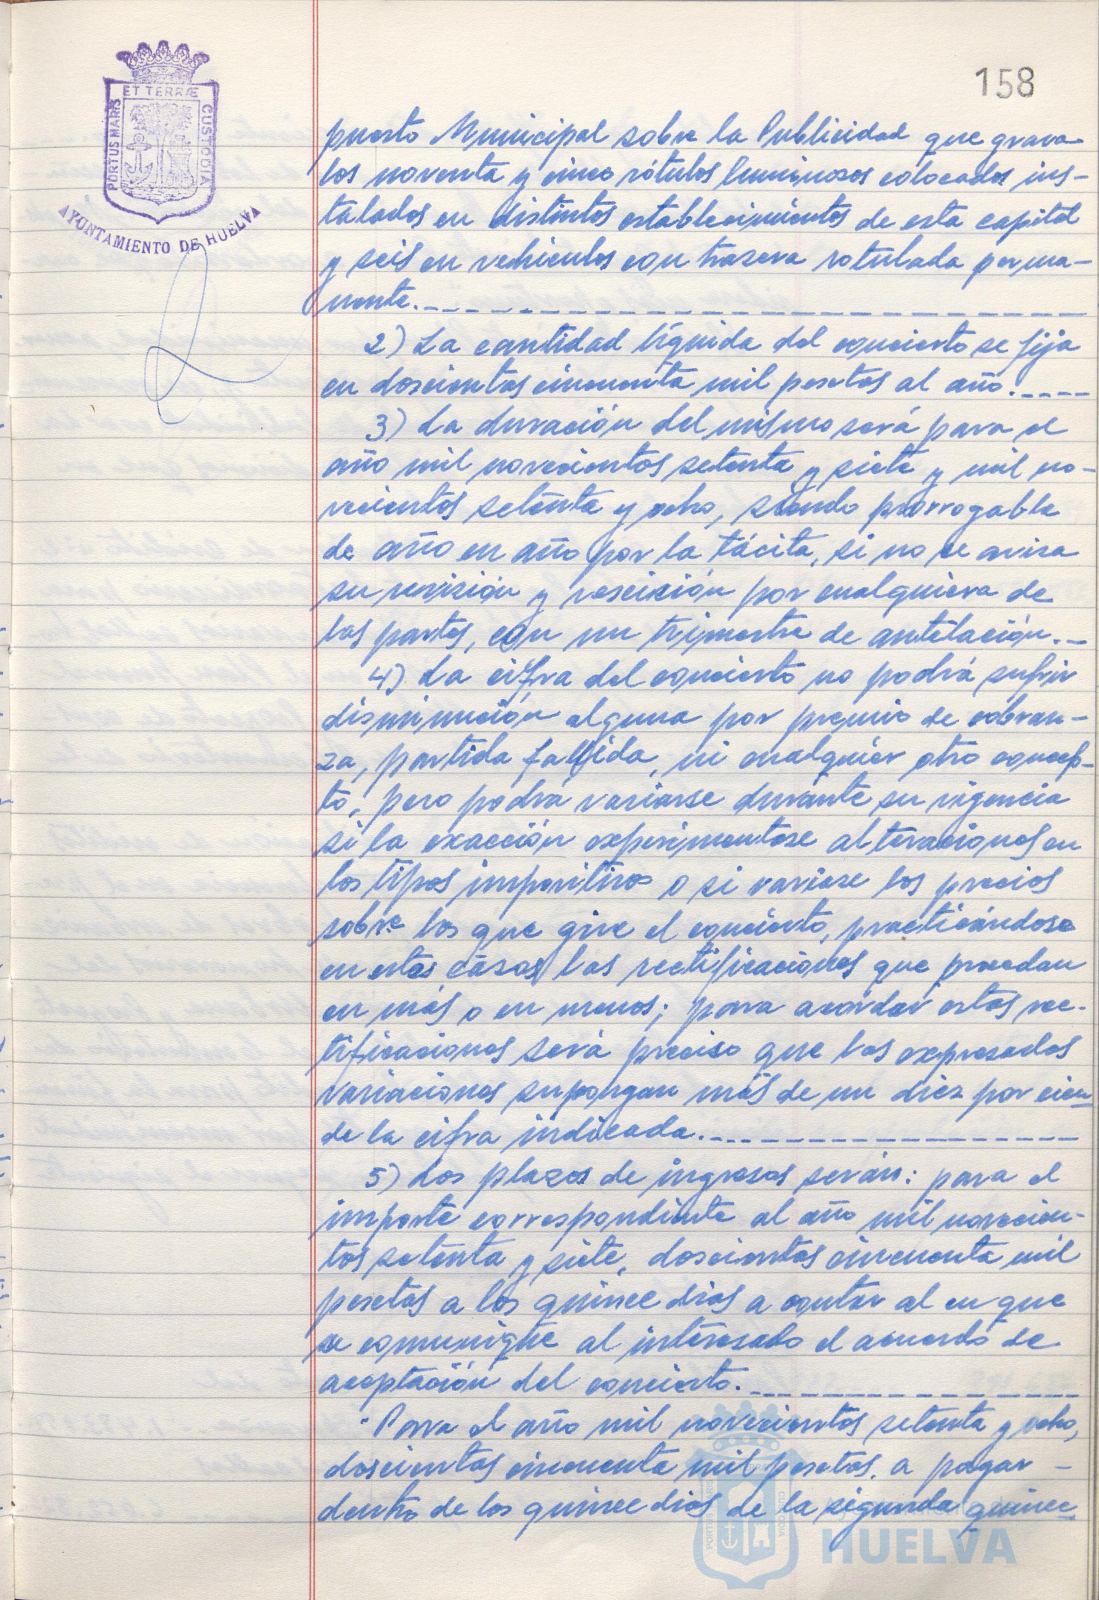 158
ET TERRÆ
PORTUS MARIS
CUSTODIA
AYUNTAMIENTO DE HUELVA
puesto Municipal sobre la Publicidad que grava
los noventa y cinco rótulos luminosos colocados ins-
talados en distintos establecimientos de esta capital
y seis en vehículos con trasera rotulada perma-
nente.
2) La cantidad líquida del concierto se fija
en doscientas cincuenta mil pesetas al año.
3) La duración del mismo será para el
año mil novecientos setenta y siete y mil no-
vecientos setenta y ocho, siendo prorrogable
de año en año por la tácita, si no se avisa
su revisión y rescisión por cualquiera de
las partes, con un trimestre de antelación.
4) La cifra del concierto no podrá sufrir
disminución alguna por premio de cobran-
za, partida fallida, ni cualquier otro concep-
to, pero podrá variarse durante su vigencia
si la exacción experimentase alteraciones en
los tipos impositivos o si variase los precios
sobre los que gire el concierto, practicándose
en estos casos las rectificaciones que procedan
en más o en menos; para acordar estas rec-
tificaciones será preciso que las expresadas
variaciones supongan más de un diez por cien
de la cifra indicada.
5) Los plazos de ingresos serán: para el
importe correspondiente al año mil novecien-
tos setenta y siete, doscientas cincuenta mil
pesetas a los quince dias a contar al en que
se comunique al interesado el acuerdo de
aceptación del concierto.
"Para el año mil novecientos setenta y ocho,
doscientas cincuenta mil pesetas. a pagar
dentro de los quince dias de la segunda quince-
HUELVA